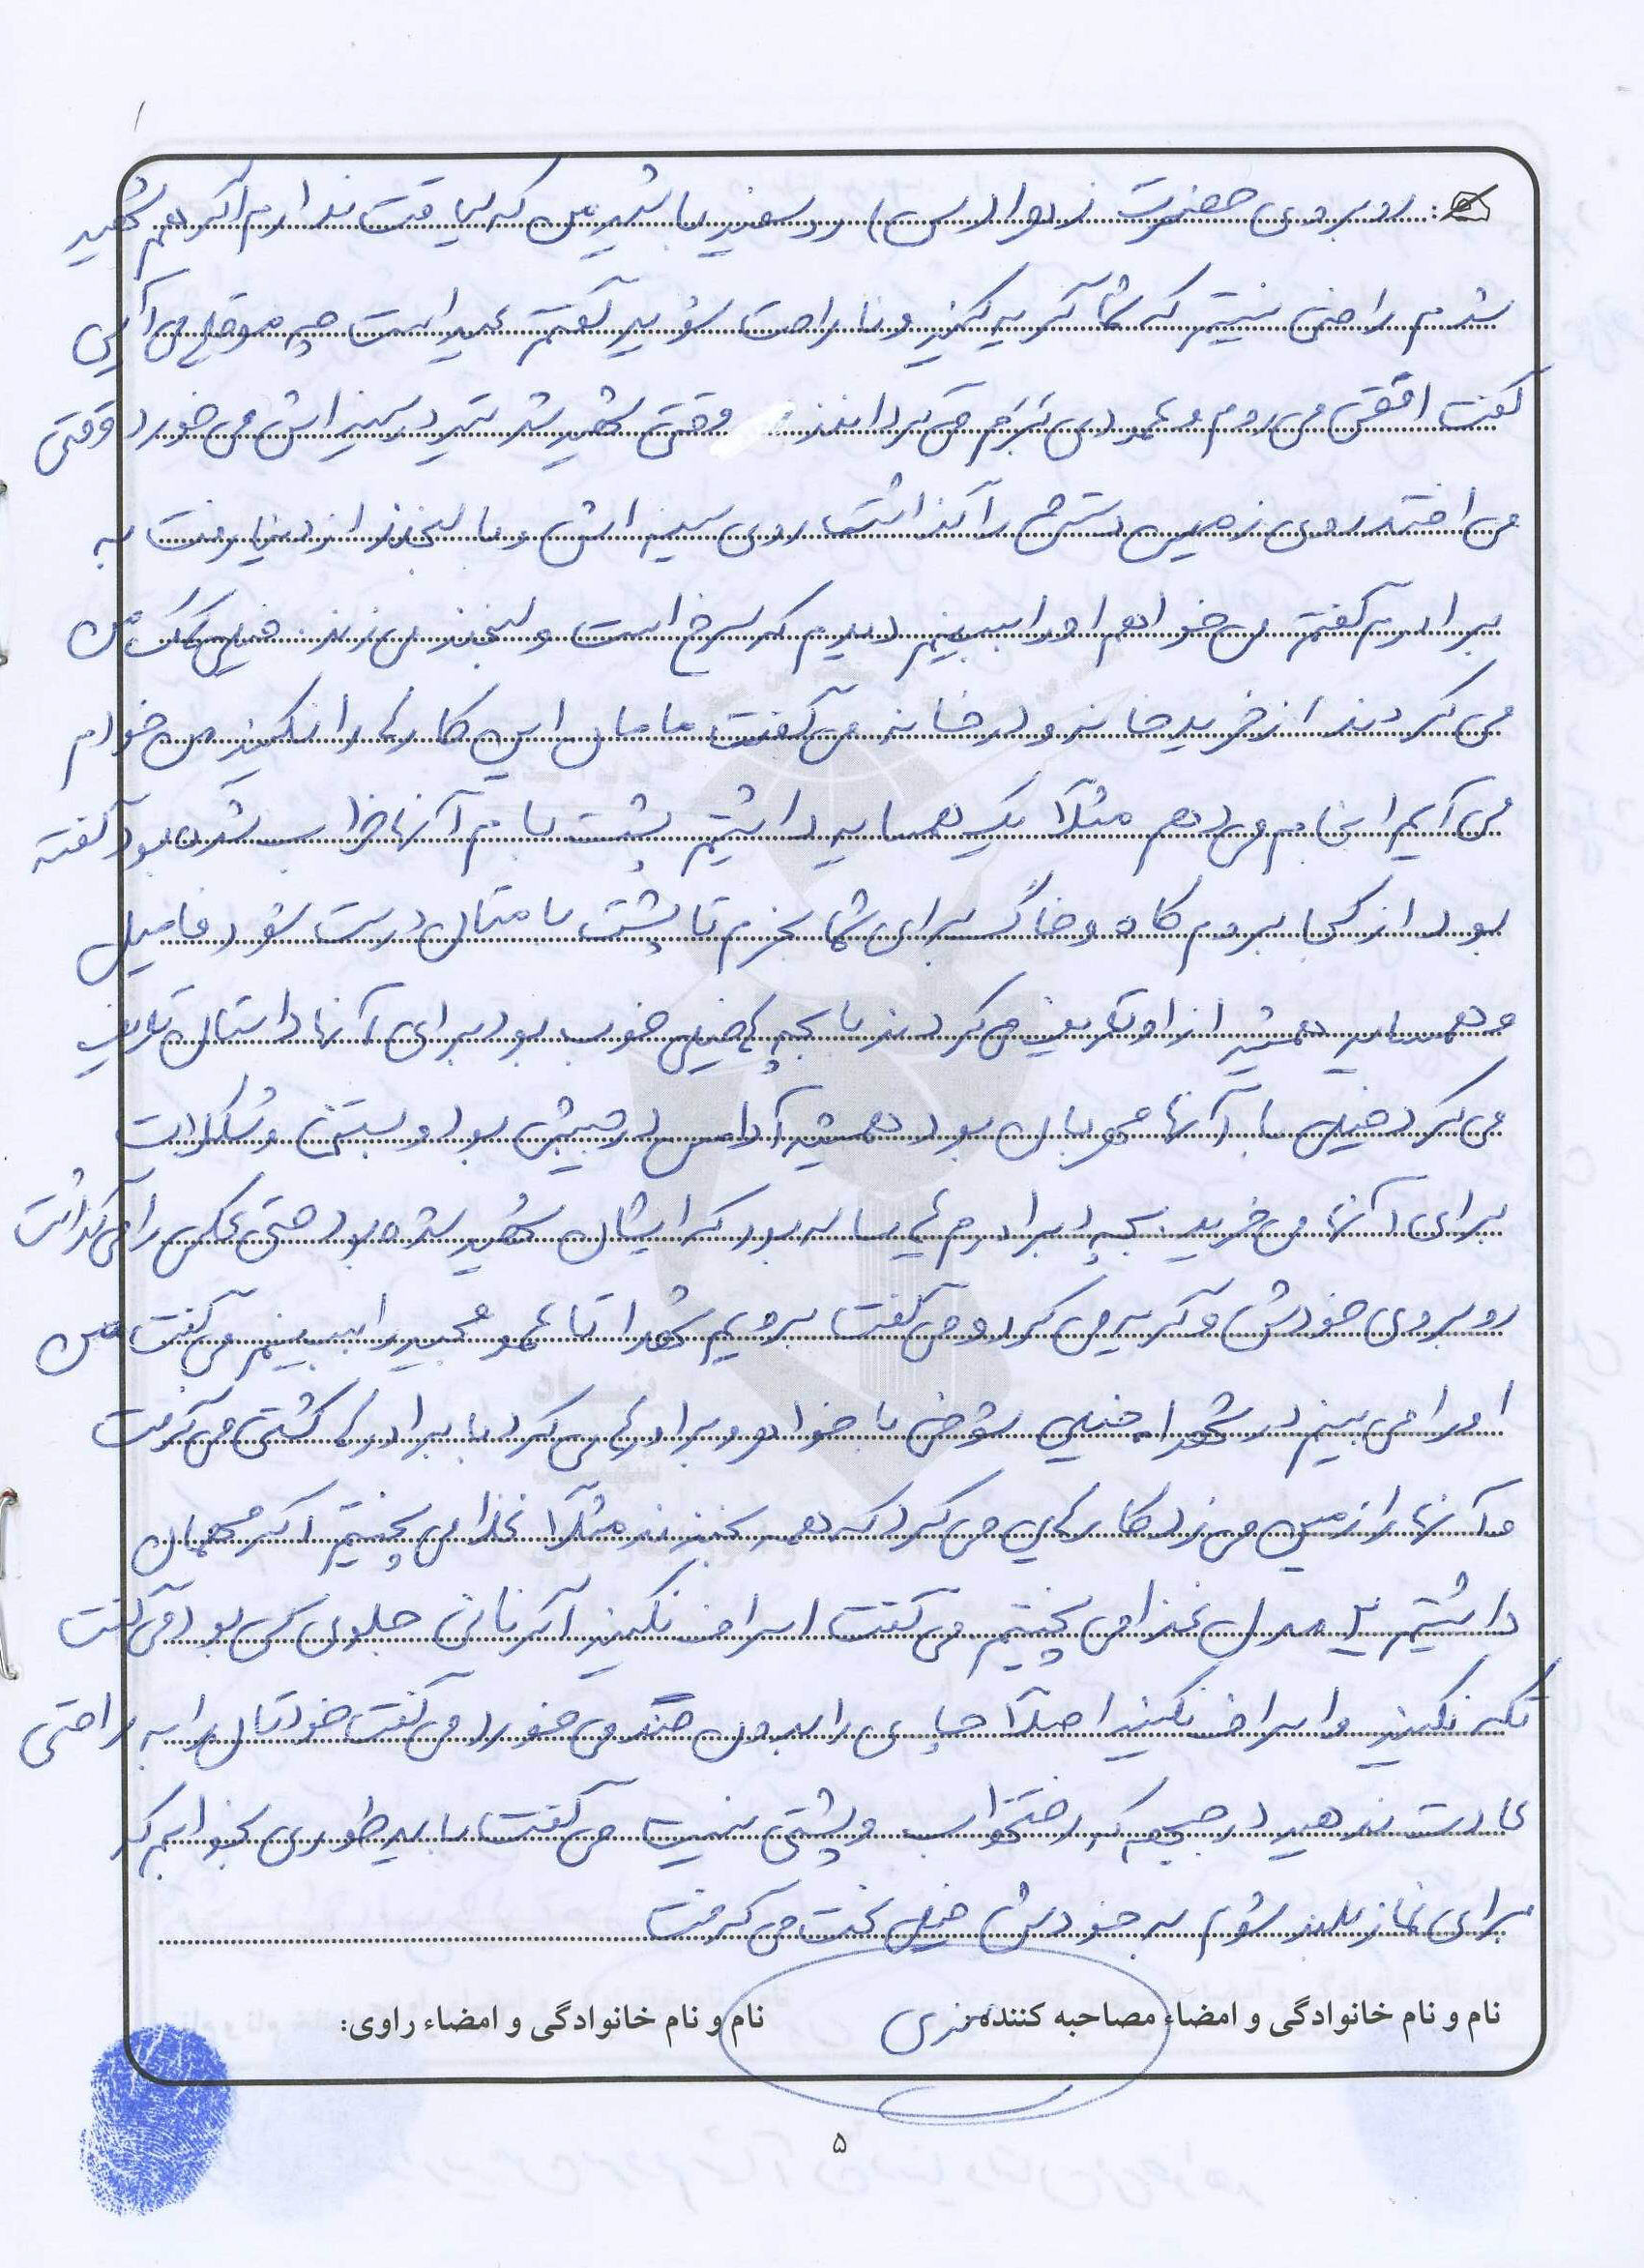 روبروی حضرت زهرا (س) روسفید باشید من که لیاقت ندارم اگر هم شهید
شدم راضی نیستم که شما گریه کنید و ناراحت شوید گفتم عید است چه موقع می آیی
گفت افقی می روم و عمودی بَرَم می گردانند وقتی شهید شد تیر در سینه اش می خورد وقتی
می افتد روی زمین دستش را گذاشت روی سینه اش و با لبخند از دنیا رفت به
برادرم گفتم می خواهم او را ببینم دیدم که سرخ است و لبخند می زند. خیلی کمک من
می کردند از خرید خانه و در خانه می گفت مامان این کارها را نکنید من خودم
می آیم انجام می دهم مثلاً یک همسایه داشتیم پشت بام آنها خراب شده بود گفته
بود از کجا بروم کاه و خاک برای شما بخرم تا پشت بامتان درست شود فامیل
و همسایه همیشه از او تعریف می کردند با بچه ها خیلی خوب بود برای آنها داستان تعریف
می کرد خیلی با آنها مهربان بود همیشه آدامس در جیبش بود و بستنی و شکلات
برای آنها می خرید. بچه برادرم ۴ ساله بود که ایشان شهید شده بود حتی عکس را می گذاشت
روبروی خودش و گریه می کرد و می گفت برویم شهدا تا عمو مجید را ببینم می گفت من
او را می بینم در شهدا. خیلی شوخی با خواهر و برادرها می کرد با برادرها کشتی می گرفت
و آنها را زمین می زد کارهایی می کرد که همه بخندند مثلاً غذا می پختیم اگر مهمان
داشتیم ۲ مدل غذا می پختیم می گفت اسراف نکنید اگر نانی جلوی کسی بود می گفت
تکه نکنید و اسراف نکنید اصلاً چای را بدون قند می خورد می گفت خودتان را به راحتی
عادت ندهید در جبهه که رختخواب و پشتی نیست می گفت باید طوری بخوابم که
برای نماز بلند شوم به خودش خیلی سخت می گرفت
نام و نام خانوادگی و امضاء مصاحبه کننده:
نام و نام خانوادگی و امضاء راوی:
۵